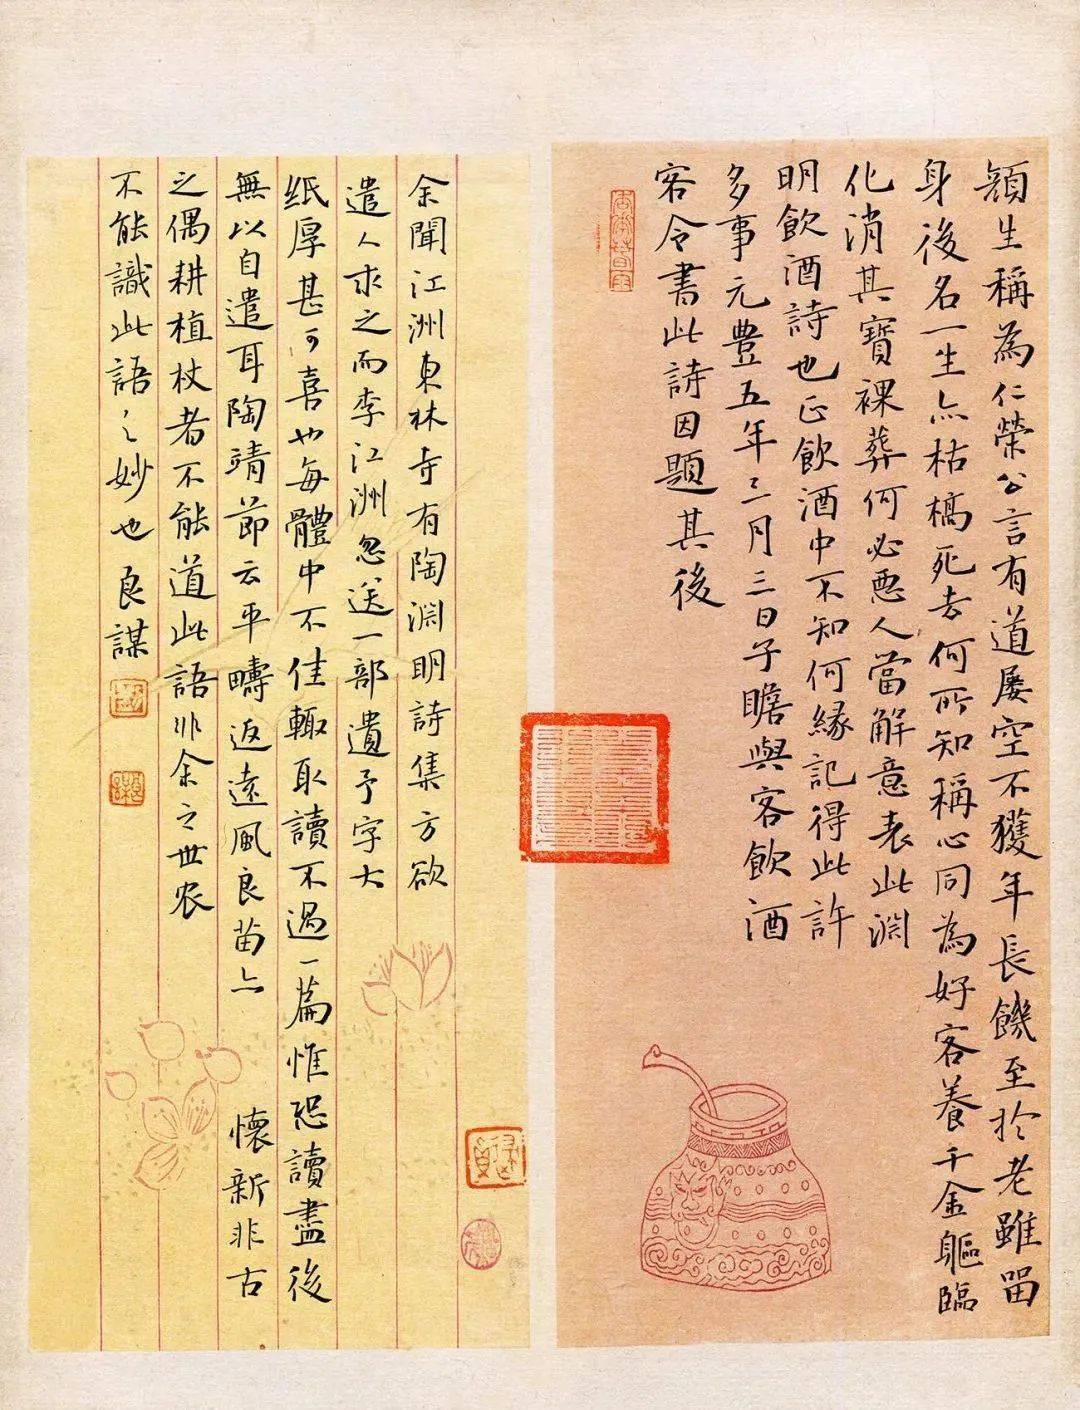 顔生稱為仁榮公言有道屢空不獲年長饑至於老雖留
身後名一生亦枯槁死去何所知稱心同為好客養千金軀臨
化消其寶裸葬何必惡人當解意表此淵
明飲酒詩也正飲酒中不知何緣記得此許
多事元豊五年三月三日子瞻與客飲酒
客令書此詩因題其後
余聞江洲東林寺有陶淵明詩集方欲
遣人求之而李江洲忽送一部遺予字大
纸厚甚可喜也每體中不佳輙取讀不過一篇惟恐讀盡後
無以自遣耳陶靖節云平疇返遠風良苗亦懷新非古
之偶耕植杖者不能道此語非余之世农
不能識此語之妙也良謀